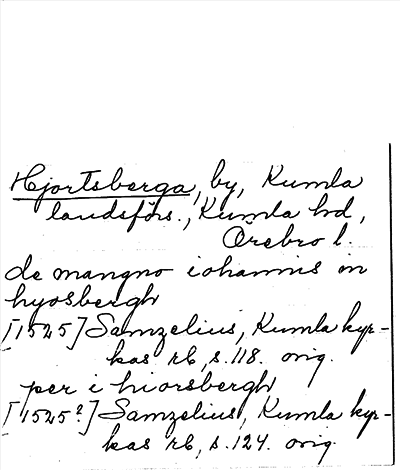 Hjortsberga, by, Kumla
landsförs., Kumla hd,
Örebro l.
de mangno iohannis in
hyosbergh
[1525] Samzelius, Kumla kyr-
kas rb, s. 118. orig.
per i hiorsbergh
[1525?] Samzelius, Kumla kyr-
kas rb, s. 124. orig